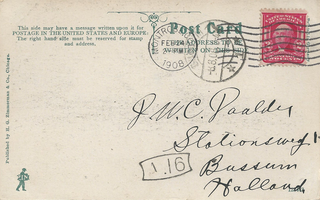 This side may have a message written upon it for
POSTAGE IN THE UNITED STATES AND EUROPE.
The right hand side must be reserved for stamp
and address.
Post Card
FEB 24
1908
J.W.C. Paalder
Stationsweg
Bussum
Holland
A.16
Published by H. G. Zimmerman & Co., Chicago.